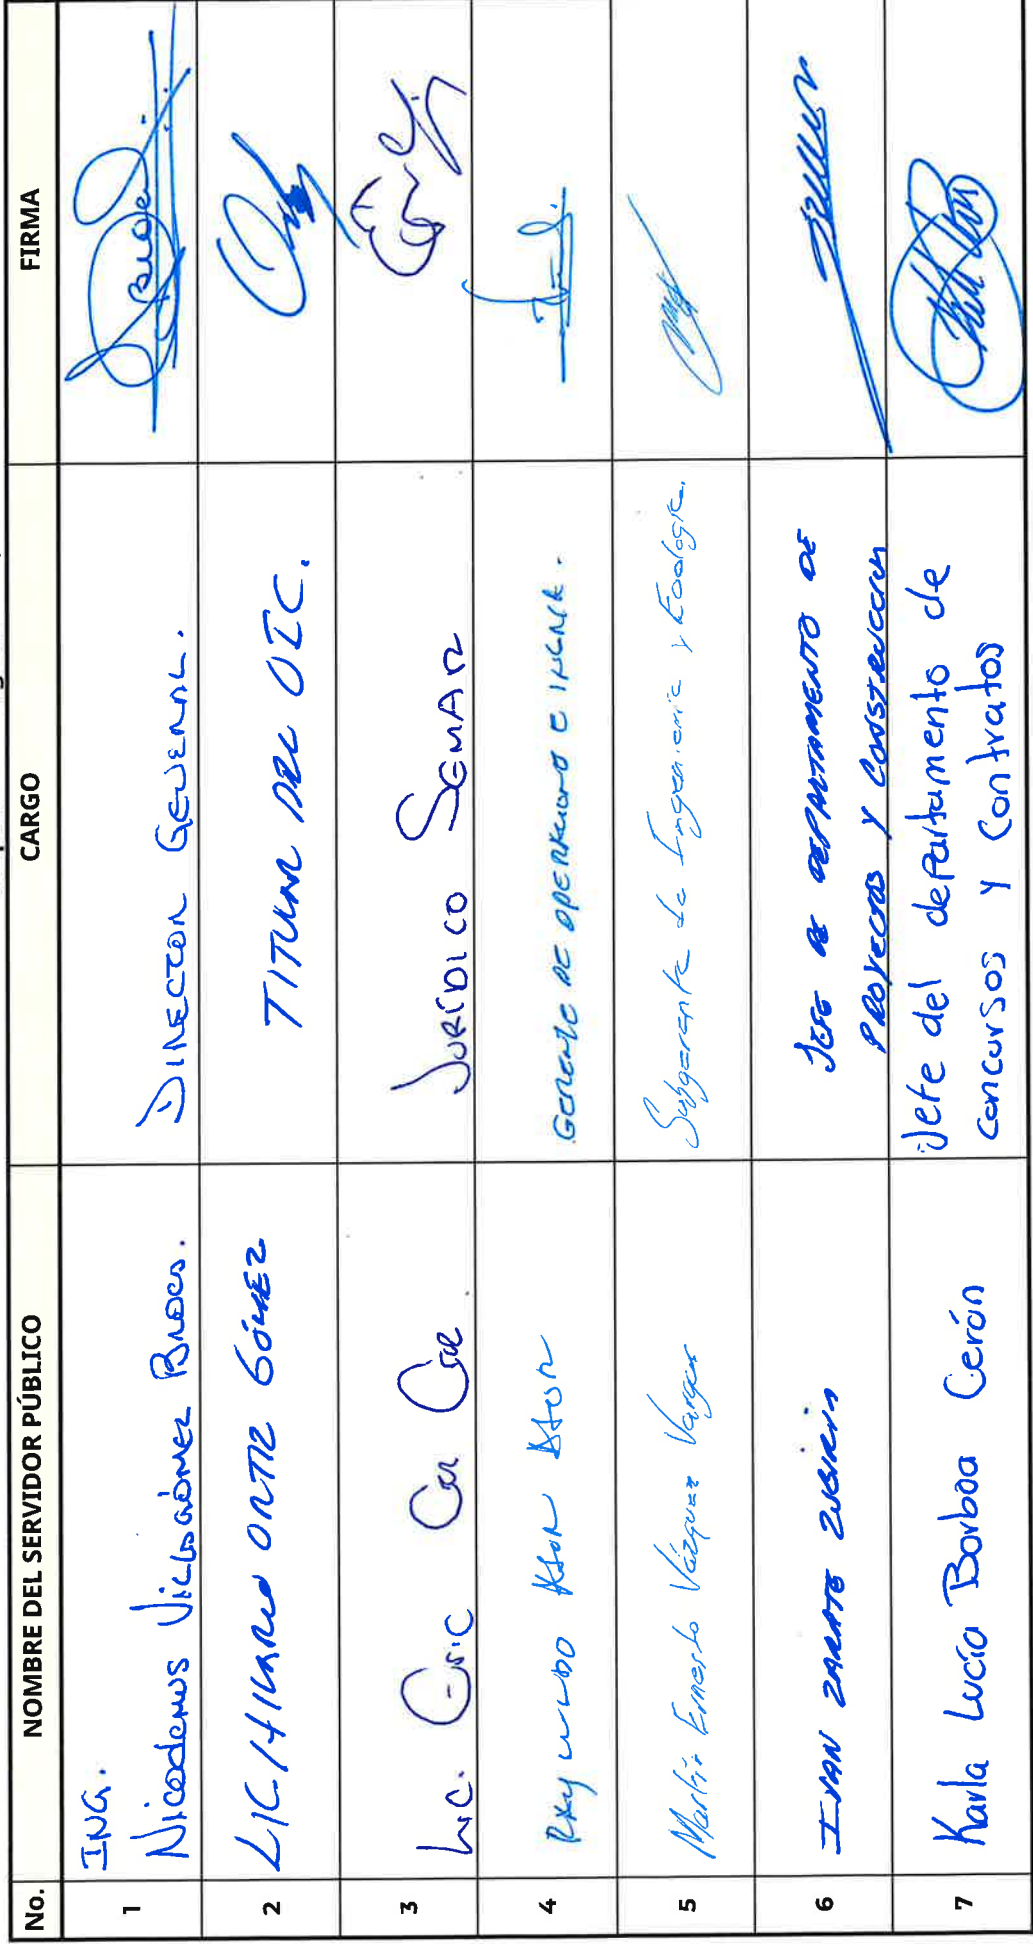 No. NOMBRE DEL SERVIDOR PÚBLICO CARGO FIRMA
1 ING.
Nicodemus Villagómez Broca. DIRECTOR GENERAL.
2 LIC. HILARIO ORTIZ GÓMEZ TITULAR DEL OIC.
3 Lic. Eric JURIDICO SEMAR
4 RAYMUNDO GERENTE DE OPERACION E
5 Martín Ernesto Vázquez Vargas Subgerente de Ingenieria y Ecologia.
6 IVAN ZARATE ZUBIRIA JEFE DE DEPARTAMENTO DE
PROYECTOS Y CONSTRUCCION
7 Karla Lucía Barboa Cerón Jefe del departamento de
concursos y contratos